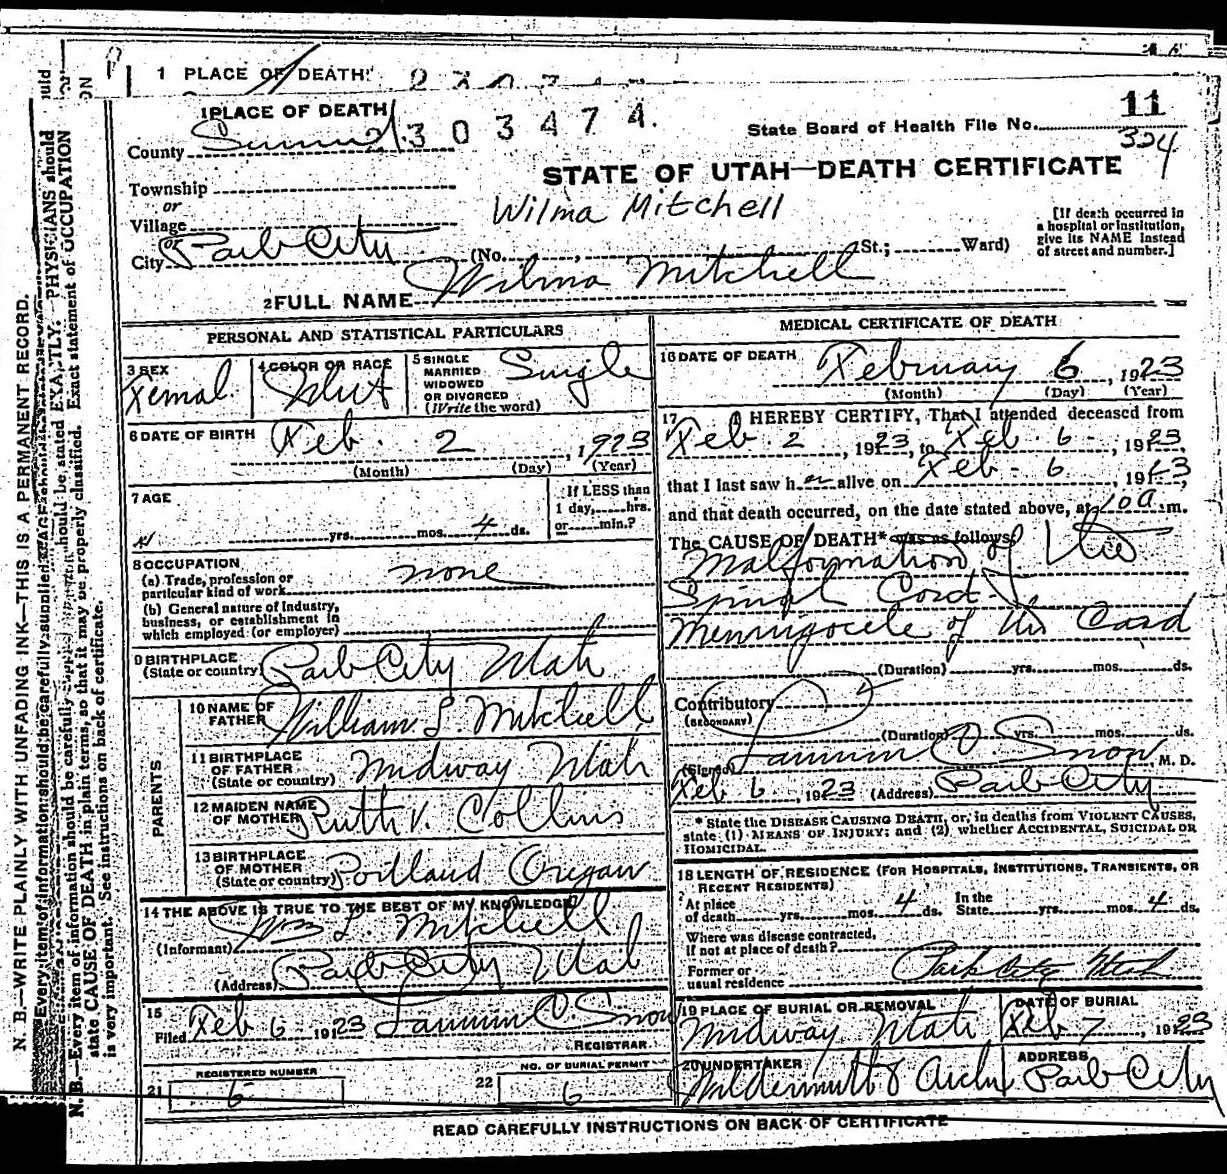 1 PLACE OF DEATH
1 PLACE OF DEATH
2303474.
11
State Board of Health File No.
324
County Summit
STATE OF UTAH—DEATH CERTIFICATE
Township
or
Village
Wilma Mitchell
or
City Park City (No. , St.; Ward)
[If death occurred in
a hospital or institution,
give its NAME instead
of street and number.]
2 FULL NAME Wilma Mitchell
PERSONAL AND STATISTICAL PARTICULARS
3 SEX Femal
4 COLOR OR RACE
5 SINGLE
MARRIED
WIDOWED
OR DIVORCED
(Write the word)
Single
6 DATE OF BIRTH Feb. 2, 1923
(Month) (Day) (Year)
7 AGE
yrs. mos. 4 ds.
If LESS than
1 day, hrs.
or min.?
8 OCCUPATION
(a) Trade, profession or
particular kind of work none
(b) General nature of Industry,
business, or establishment in
which employed (or employer)
9 BIRTHPLACE
(State or country) Park City Utah
PARENTS
10 NAME OF
FATHER William L. Mitchell
11 BIRTHPLACE
OF FATHER
(State or country) Midway Utah
12 MAIDEN NAME
OF MOTHER Ruth V. Collins
13 BIRTHPLACE
OF MOTHER
(State or country) Portland Oregon
14 THE ABOVE IS TRUE TO THE BEST OF MY KNOWLEDGE
(Informant) Wm L. Mitchell
(Address) Park City Utah
15
Filed Feb 6 1923 Snow
REGISTRAR.
REGISTERED NUMBER
21 6
NO. OF BURIAL PERMIT
22 6
MEDICAL CERTIFICATE OF DEATH
16 DATE OF DEATH February 6, 1923
(Month) (Day) (Year)
17 I HEREBY CERTIFY, That I attended deceased from
Feb. 2, 1923, to Feb. 6, 1923,
that I last saw her alive on Feb - 6 1923,
and that death occurred, on the date stated above, at 10 a m.
The CAUSE OF DEATH* was as follows:
Malformation of the
Spinal Cord.
Meningocele of the Cord
(Duration) yrs. mos. ds.
Contributory
(SECONDARY)
(Duration) yrs. mos. ds.
(Signed) Snow, M. D.
Feb 6, 1923 (Address) Park City
* State the DISEASE CAUSING DEATH, or, in deaths from VIOLENT CAUSES,
state (1) MEANS OF INJURY; and (2) whether ACCIDENTAL, SUICIDAL OR
HOMICIDAL.
18 LENGTH OF RESIDENCE (FOR HOSPITALS, INSTITUTIONS, TRANSIENTS, OR
RECENT RESIDENTS)
At place
of death yrs. mos. 4 ds.
In the
State yrs. mos. 4 ds.
Where was disease contracted,
if not at place of death?
Former or
usual residence Park City Utah
19 PLACE OF BURIAL OR REMOVAL
Midway Utah
DATE OF BURIAL
Feb 7, 1923
20 UNDERTAKER
ADDRESS
Park City
READ CAREFULLY INSTRUCTIONS ON BACK OF CERTIFICATE
N. B.—WRITE PLAINLY WITH UNFADING INK—THIS IS A PERMANENT RECORD.
Every item of information should be carefully supplied. AGE should be stated EXACTLY. PHYSICIANS should
N. B.—Every item of information should be carefully supplied.
state CAUSE OF DEATH in plain terms, so that it may be properly classified. Exact statement of OCCUPATION
is very important. See instructions on back of certificate.